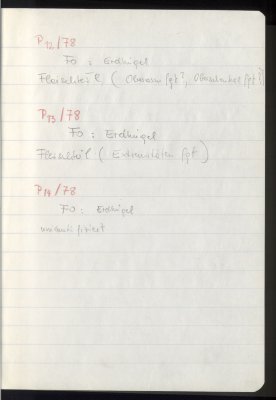 P12/78
FO : Erdhügel
Fleischteil ( Oberarm fgt?, Oberschenkel fgt?)
P13/78
FO : Erdhügel
Fleischteil ( Extremitäten fgt )
P14/78
FO : Erdhügel